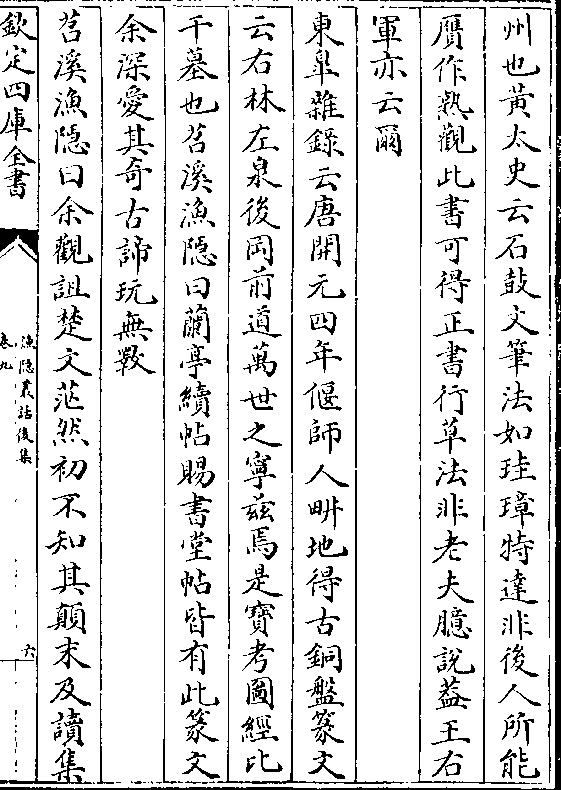 州也黃太史云石鼓文筆法如珪璋特達非後人所能
贋作熟觀此書可得正書行草法非老夫臆說葢王右
軍亦云爾
東臯雜錄云唐開元四年偃師人畊地得古銅盤篆文
云右林左泉後岡前道萬世之寧兹焉是寶考圖經比
干墓也苕溪漁隱曰蘭亭續帖賜書堂帖皆有此篆文
余深愛其奇古諦玩無斁
苕溪漁隱曰余觀詛楚文茫然初不知其顛末及讀集
欽定四庫全書
漁隱叢話後集
卷九
六